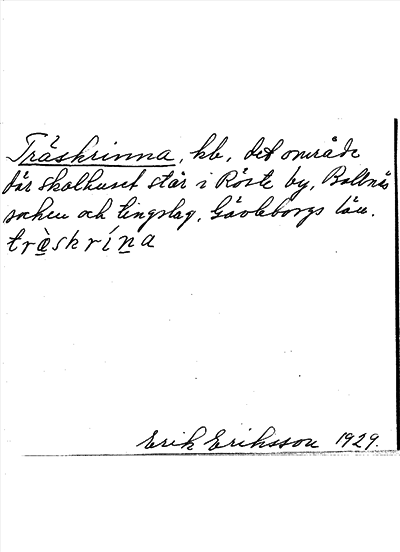 Träskrinna, hb, det område
där skolhuset står i Röste by, Bollnäs
socken och tingslag, Gävleborgs län.
trä̀skrína
Erik Eriksson 1929.